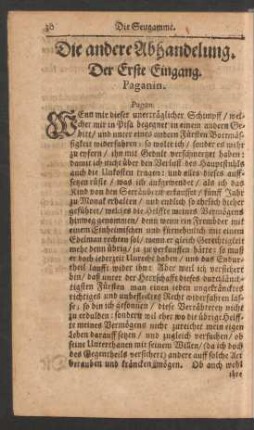 36 Die Seugamme.
Die andere Abhandelung.
Der Erste Eingang.
Paganin.
Pagan.
WEnn mir dieser unerträglicher Schimpff / wel-
cher mir in Pisa begegnet in einem andern Ge-
biet / und unter eines andern Fürsten Botmäs-
sigkeit widerfahren: so wolte ich / sonder es wehr
zu eyfern / ihn mit Gedult verschmertzet haben:
damit ich nicht über den Verlust des Hauptstuhls
auch die Unkosten tragen: und alles dieses auff-
setzen müste / was ich aufgewendet / als ich das
Kind von den Seeräubern erkaufft / fünff Jahr
zu Monat erhalten / und endlich so ehrlich hieher
geführet / welches die Helffte meines Vermögens
hinweg genommen / denn wenn ein Frembder mit
einem Einheimischen und fürnehmlich mit einem
Edelman rechten sol / wenn er gleich Gerechtigkeit
mehr denn übrig / ja zu verkauffen hätte: so muß
er doch jederzeit Unrecht haben / und das Endur-
theil laufft wider ihn: Aber weil ich versichert
bin / daß unter der Herrschafft dieses durchläuch-
tigsten Fürsten man einen jeden ungekräncktes
richtiges und unbeflecktes Recht widerfahren läs-
set; so bin ich gesonnen / diese Verrätherey nicht
zu erdulden: sondern wil eher wo die übrige Helff-
te meines Vermögens nicht zureichet mein eigen
Leben darauff setzen / und zugleich versuchen / ob
seine Unterthanen mit seinem Willen / (da ich doch
des Gegentheils versichert) andere auff solche Art
berauben und kräncken mögen. Ob auch wohl
ihre